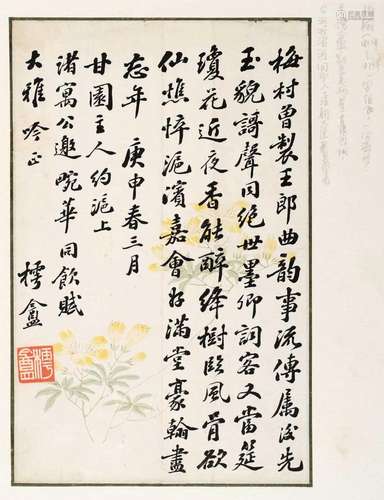 梅村曾製王郎曲韵事流傳屬後先
玉貌謌聲同絕世墨卿詞客又當筵
瓊花近夜香能醉絳樹臨風骨欲
仙憔悴滬濱嘉會好滿堂豪翰盡
忘年 庚申春三月
甘園主人約滬上
諸寓公邀畹華同飲賦
大雅吟正
樗盦
樗盦